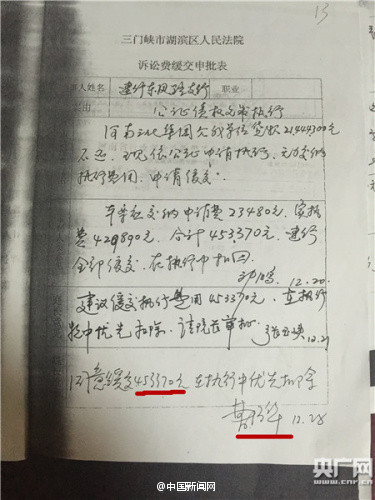 13
三门峡市湖滨区人民法院
诉讼费缓交申批表
人姓名 建行东风路支行 职业
由 公证债权文书执行
河南 集团欠我单位贷款21444300元
不还,现依公证申请执行,无力交纳
执行费用,申请缓交。
本案应交纳申请费23480元,实支
费429890元,合计453370元,建行
全部缓交,在执行中扣回。
12.20
建议缓交执行费用453370元,在执行
中优先扣除,请院长审批。
12.21
同意缓交453370元在执行中优先扣除
12.28
@中国新闻网
央广网
www.cnr.cn